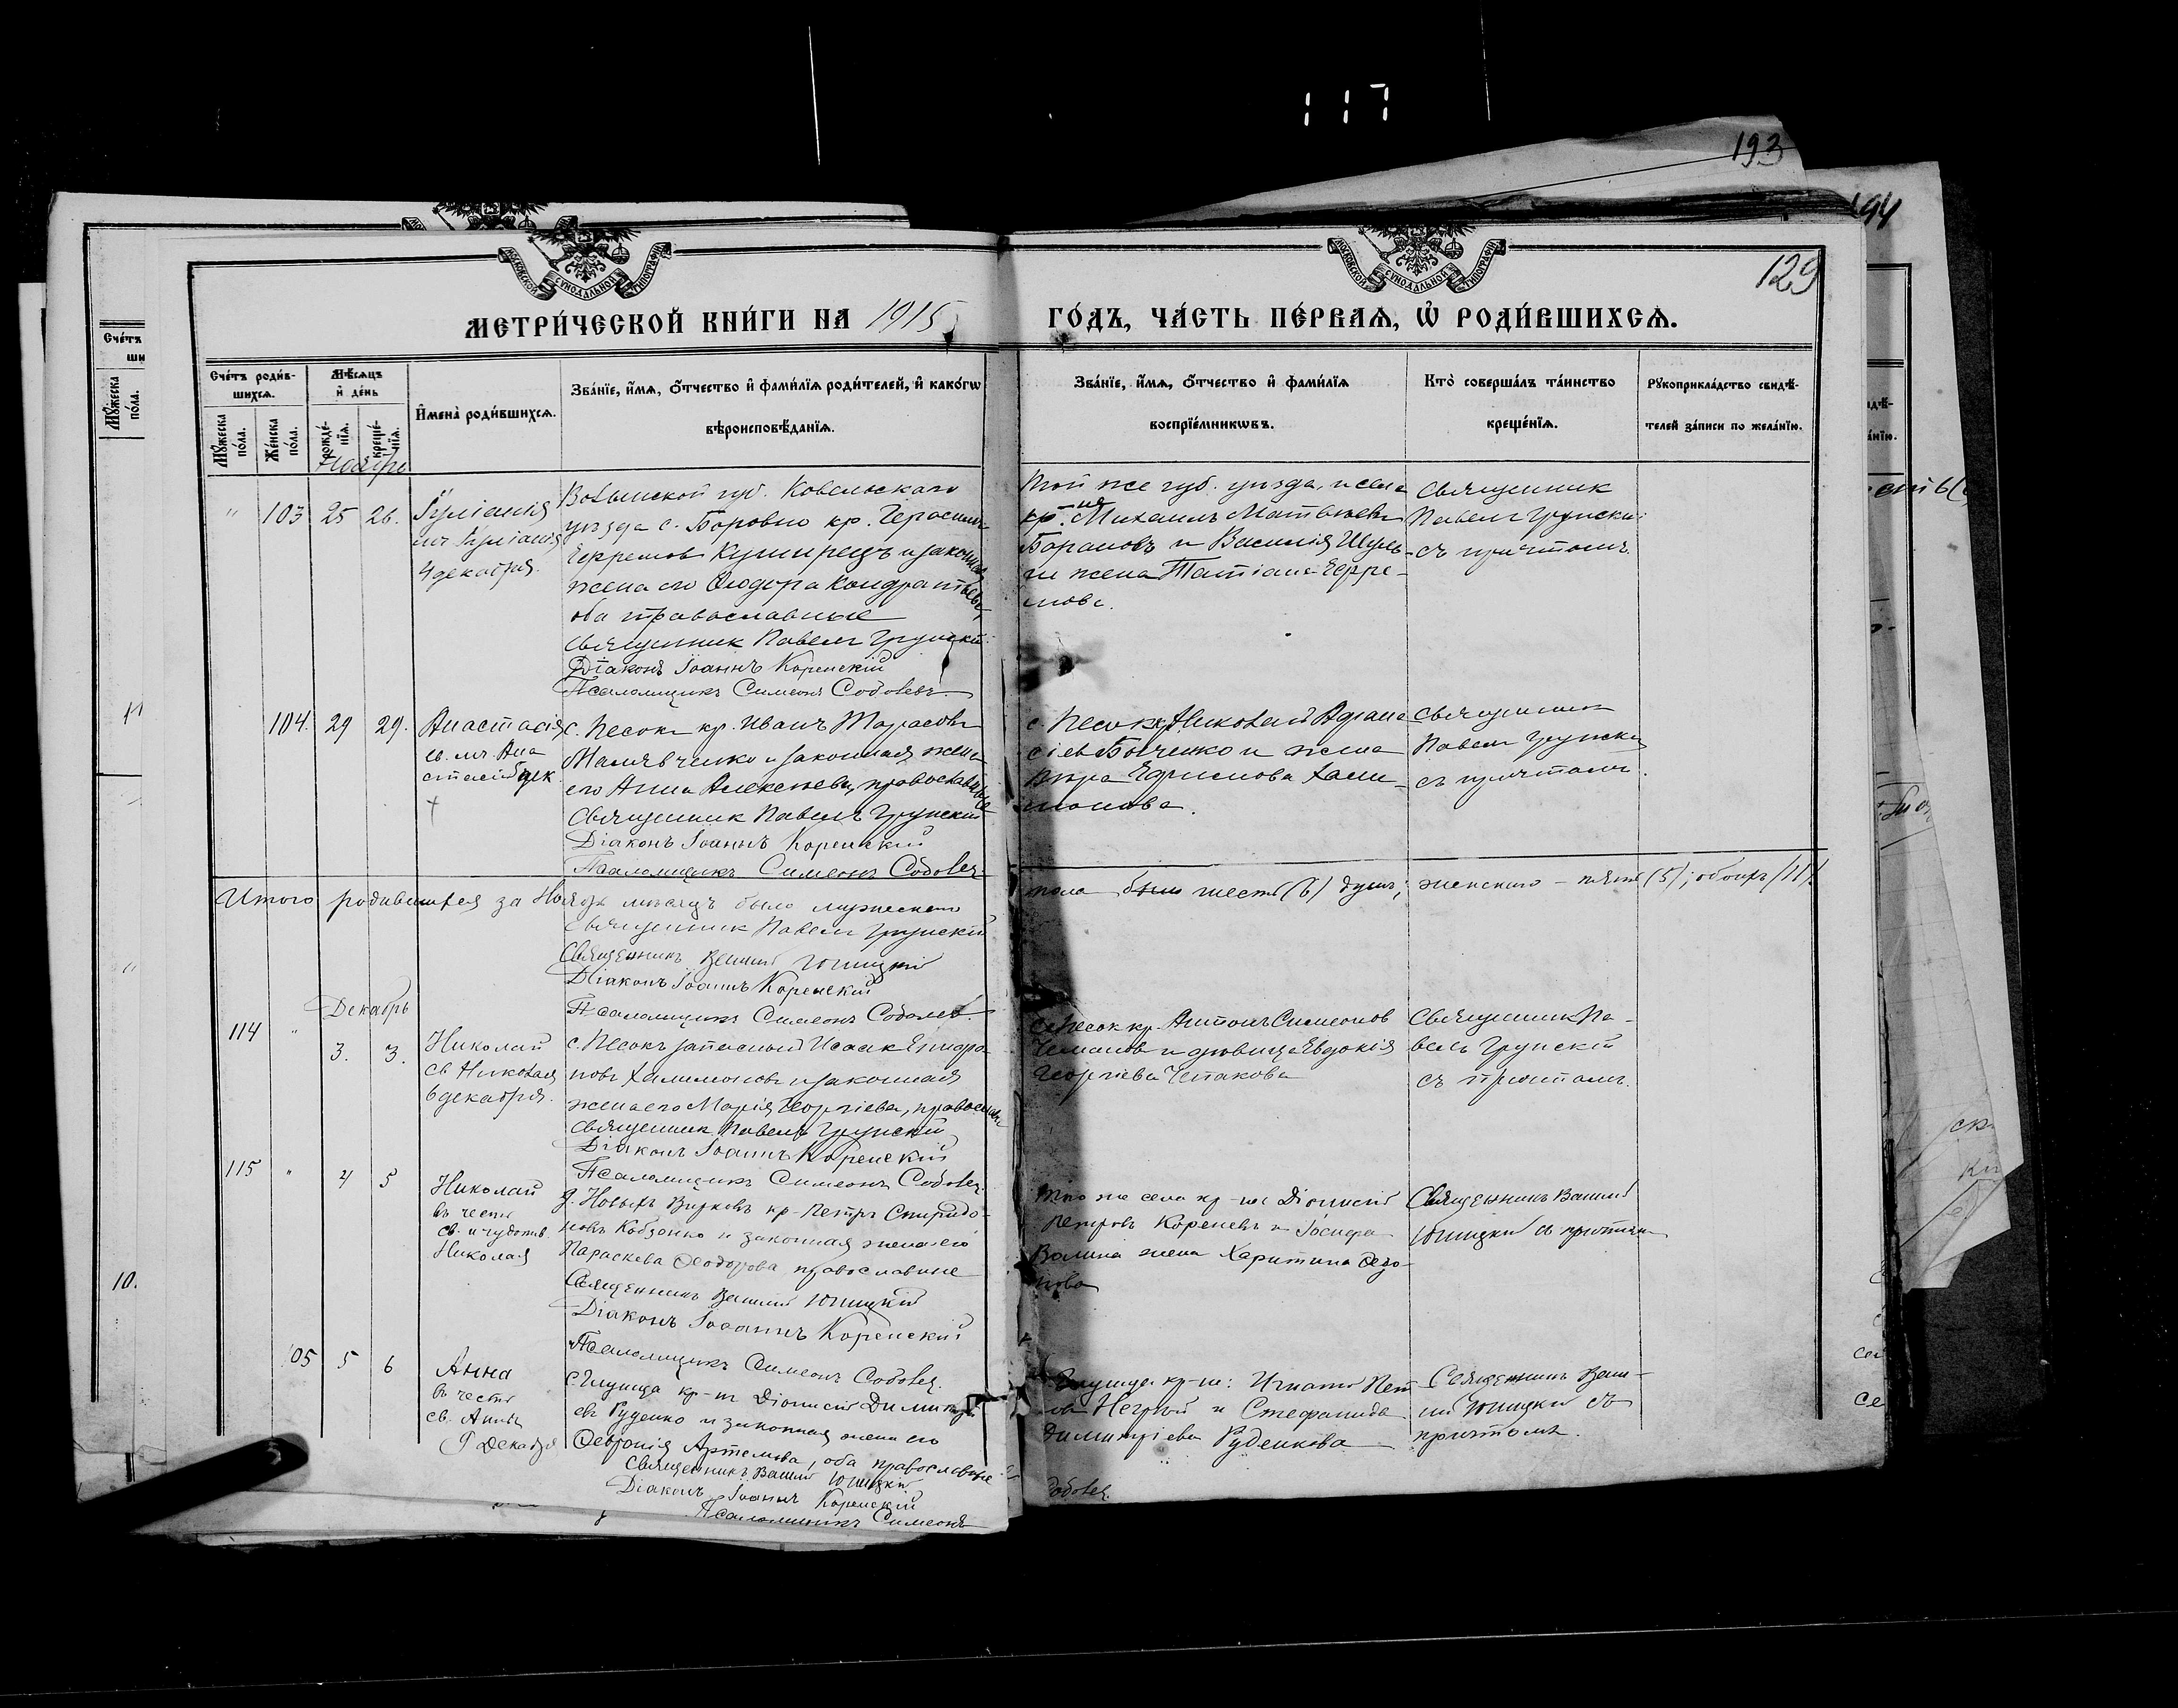 117
193
194
129
МЕТРИ́ЧЕСКОЙ КНИ́ГИ НА 1915
ГО́ДЪ, ЧА́СТЬ ПЕ́РВАѦ, Ѽ РОДИ́ВШИХСѦ.
Сче́тъ роди́в-
шихсѧ.
Мꙋ́жеска по́ла.
Же́нска по́ла.
Мѣ́сѧцъ и҆ де́нь
рожде́-нїѧ.
креще́-нїѧ.
И҆мена̀ роди́вшихсѧ.
Зва́нїе, и҆́мѧ, ѻ҆́тчество и҆ фами́лїѧ роди́телей, и҆ како́гѡ
вѣроисповѣ́данїѧ.
Зва́нїе, и҆́мѧ, ѻ҆́тчество и҆ фами́лїѧ
воспрїе́мникѡвъ.
Кто̀ соверша́лъ та́инство
креще́нїѧ.
Рꙋкоприкла́дство свидѣ́-
телей за́писи по жела́нїю.
Ноябрь
" 103 25 26.
Іуліанія
мч. Іуліанія
4 декабря.
Волынской губ. Ковельскаго
уѣзда с. Боровно кр. Герасимъ
Ефремовъ Кушнрецъ и законная
жена его Ѳеодора Кондратьева,
оба православные
Священникъ Павелъ Грунскій
Діаконъ Іоаннъ Коренскій
Псаломщикъ Симеонъ Соболев.
Той же губ. уѣзда, и села
кр-не Михаилъ Матвѣевъ
Барановъ и Василія Шуль-
ги жена Татіана Ефре-
мова.
Священникъ
Павелъ Грунскій
съ причтомъ.
104. 29 29.
Анастасія
св. мч. Ана
стасіи дек
†
с. Песокъ кр. Иванъ Тарасовъ
Малявченко и законная жена
его Анна Алексѣева, православные
Священникъ Павелъ Грунскій
Діаконъ Іоаннъ Коренскій
Псаломщикъ Симеонъ Соболев.
с. Песокъ Николай Афана
сіевъ Бойченко и жена
Ефимова Хали-
монова.
Священникъ
Павелъ Грунскій
съ причтомъ.
Итого родившихся за Ноябрь мѣсяцъ было мужескаго
пола было шесть (6) душъ; женскаго – пять (5); обоихъ (11).
Священникъ Павелъ Грунскій
Священникъ Юницкій
Діаконъ Іоаннъ Коренскій
Псаломщикъ Симеонъ Соболев.
Декабрь
114 " 3. 3.
Николай
св. Николая
6 декабря.
с. Песокъ запасный Исаакъ Спиридо
новъ Халимоновъ и законная
жена его Марія Георгіева, православн
Священникъ Павелъ Грунскій
Діаконъ Іоаннъ Коренскій
Псаломщикъ Симеонъ Соболев.
с. Песок кр. Антонъ Симеонов
и дѣвица Евдокія
Георгіева Чепакова
Священникъ Па-
велъ Грунскій
съ причтомъ.
115 " 4 5
Николай
въ честь
св. и чудотв.
Николая
д. Новыхъ Вирковъ кр-нъ Петръ Спиридо-
новъ Кобзенко и законная жена его
Параскева Ѳеодорова православные
Священникъ Юницкій
Діаконъ Іоаннъ Коренскій
Псаломщикъ Симеонъ Соболев.
Того же села кр-не Діонисій
Петровъ Кореневъ и Іосифа
Волика жена Харитина
нова
Священникъ
Юницкій съ причтом
105 5 6
Анна
въ честь
св. Анны
9 Декабря
с. Глушца кр-нъ Діонисій Димитрі
евъ Руденко и законная жена его
Ѳевронія Артемова, оба православные
Священникъ Юницкій
Діаконъ Іоаннъ Коренскій
Псаломщикъ Симеонъ
Соболев.
Глушца кр-не: Игнатій Пет
овъ Негрій и Стефанида
Димитріева Руденкова
Священникъ
Юницкій съ
причтомъ.